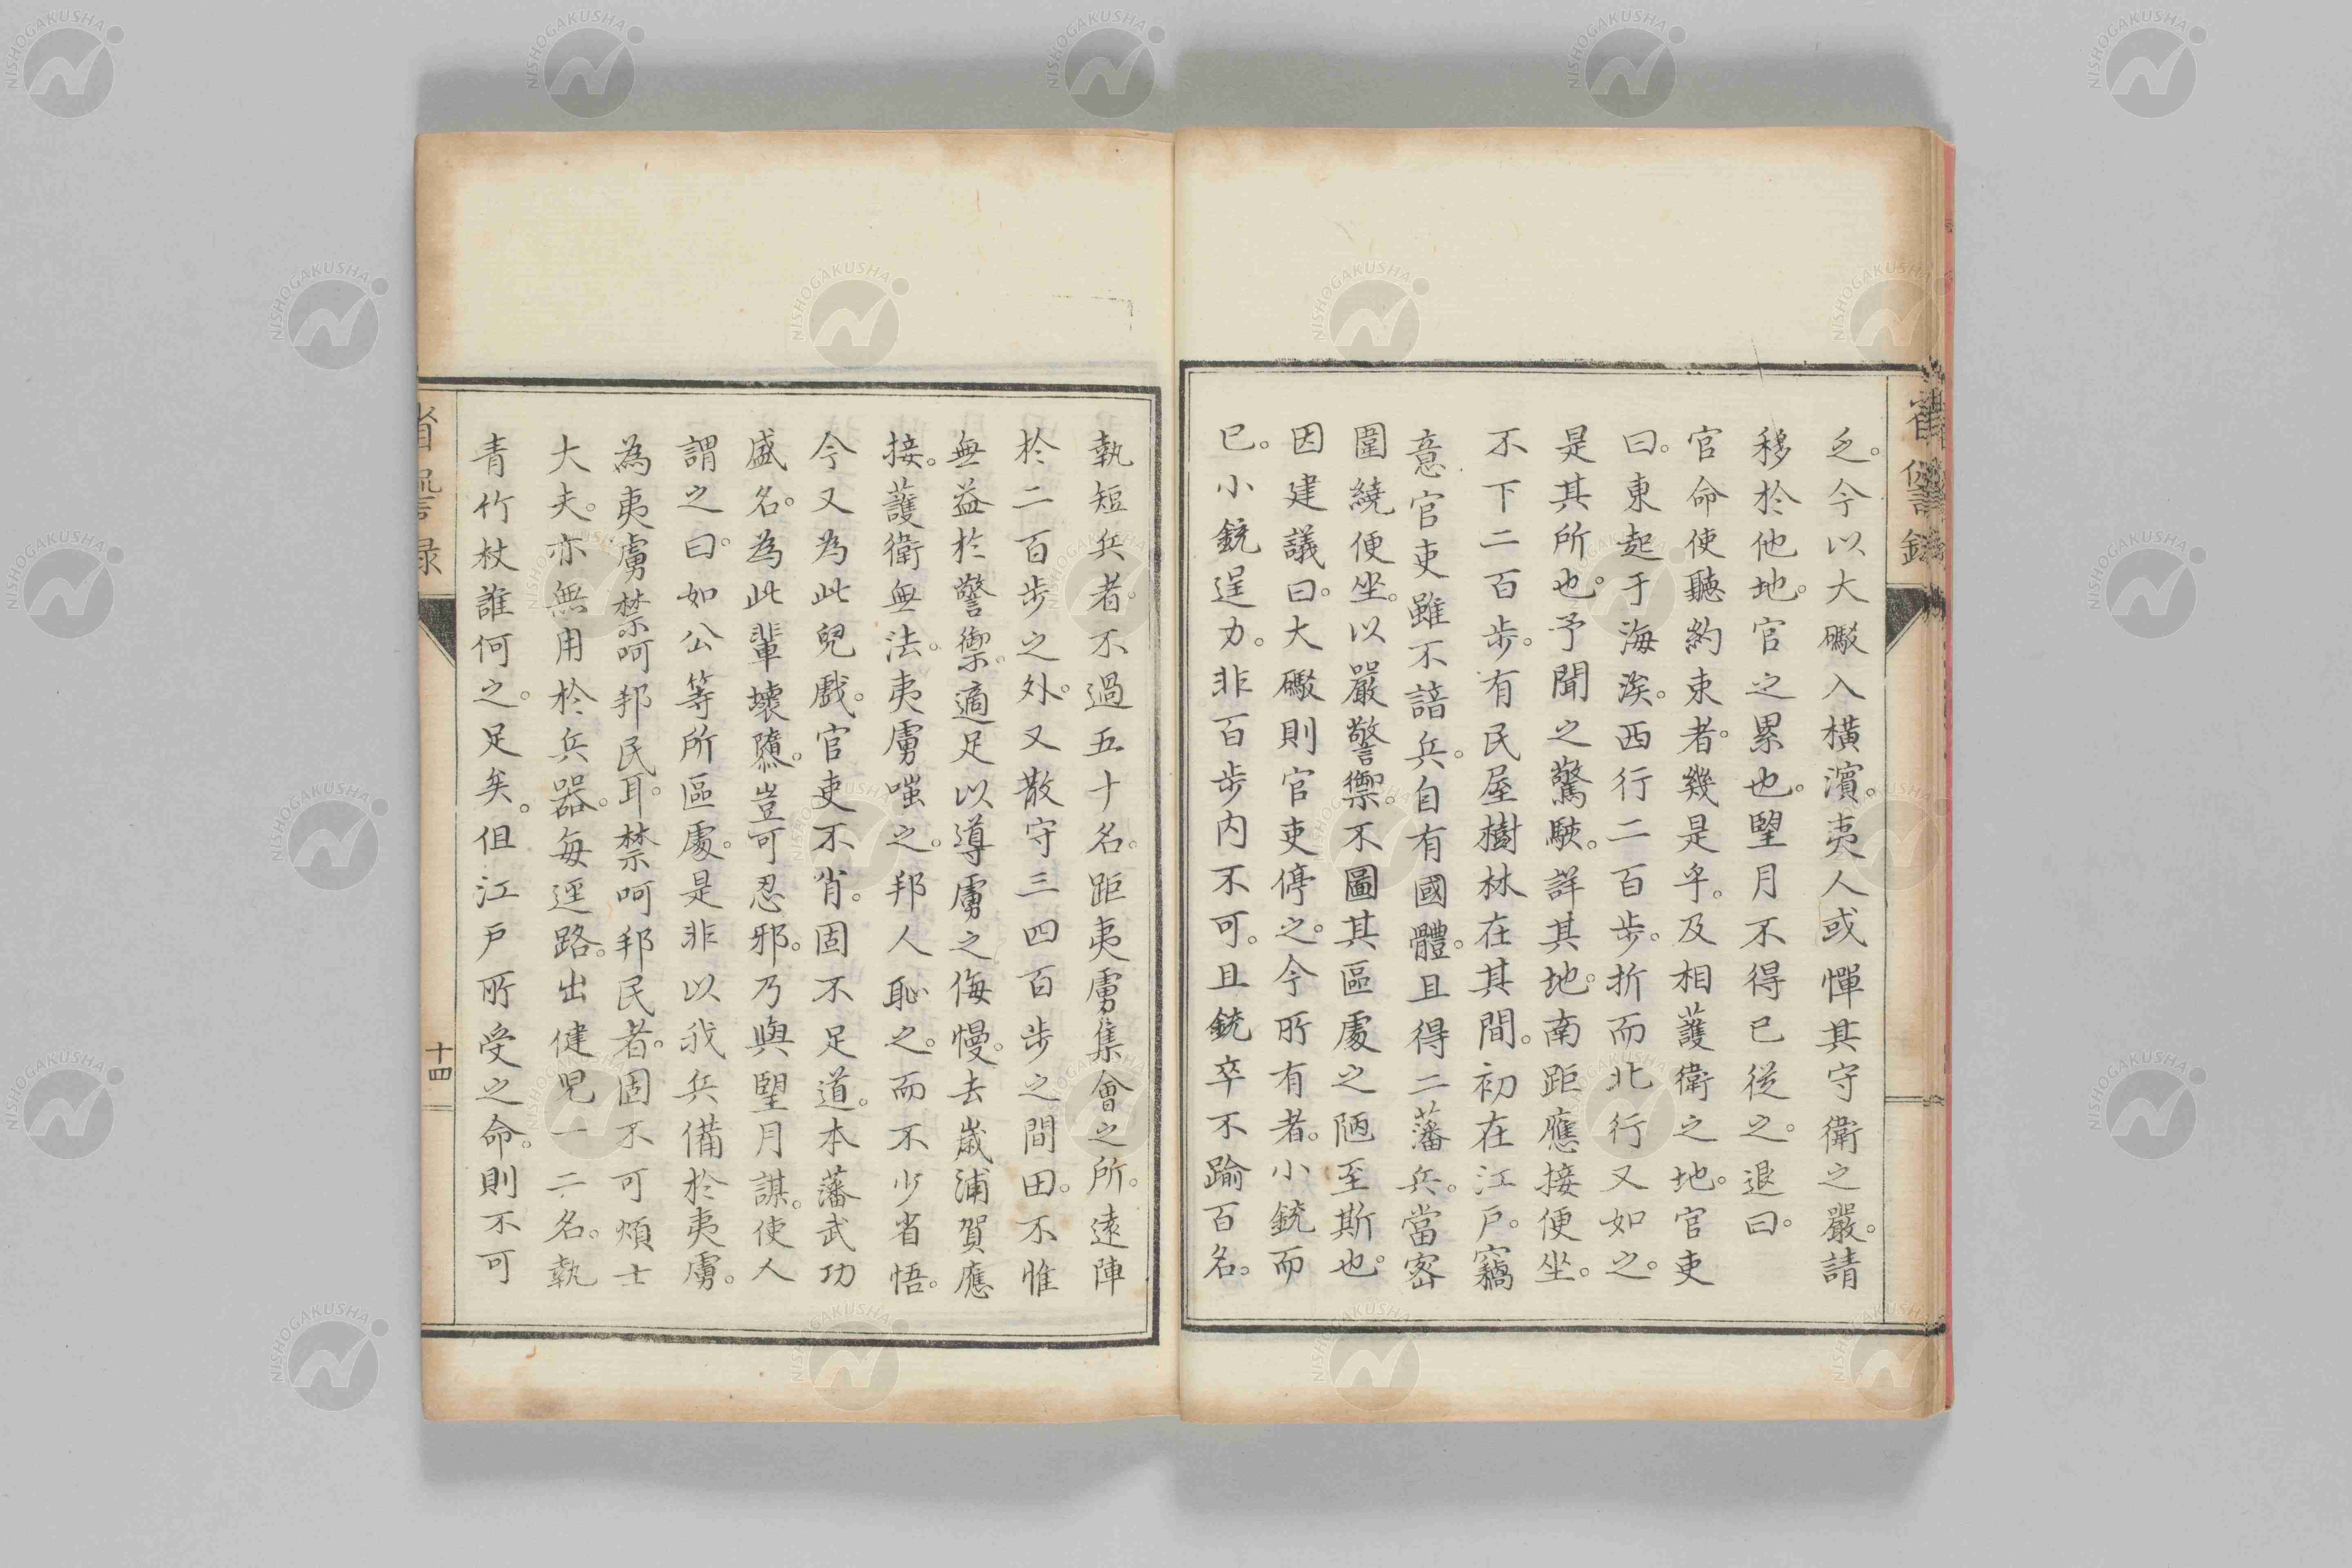 省諐録
乏。今以大礟入横濱。夷人或憚其守衛之嚴。請
移於他地。官之累也。望月不得已從之。退曰。
官命使聽約束者。幾是乎。及相護衛之地。官吏
曰。東起于海涘。西行二百步。折而北行又如之。
是其所也。予聞之驚駭。詳其地。南距應接便坐。
不下二百步。有民屋樹林在其間。初在江戶。竊
意官吏雖不諳兵。自有國體。且得二藩兵。當密
圍繞便坐。以嚴警禦。不圖其區處之陋至斯也。
因建議曰。大礟則官吏停之。今所有者。小銃而
已。小銃逞力。非百步内不可。且銃卒不踰百名。
執短兵者。不過五十名。距夷虜集會之所。遠陣
於二百步之外。又散守三四百步之間田。不惟
無益於警禦。適足以導虜之侮慢。去歲浦賀應
接。護衛無法。夷虜嗤之。邦人恥之。而不少省悟。
今又為此兒戲。官吏不肖。固不足道。本藩武功
盛名。為此輩壞隳。豈可忍邪。乃與望月謀。使人
謂之曰。如公等所區處。是非以我兵備於夷虜。
為夷虜禁呵邦民耳。禁呵邦民者。固不可煩士
大夫。亦無用於兵器。每逕路。出健児一二名。執
青竹杖誰何之。足矣。但江戶所受之命。則不可
省諐録
十四